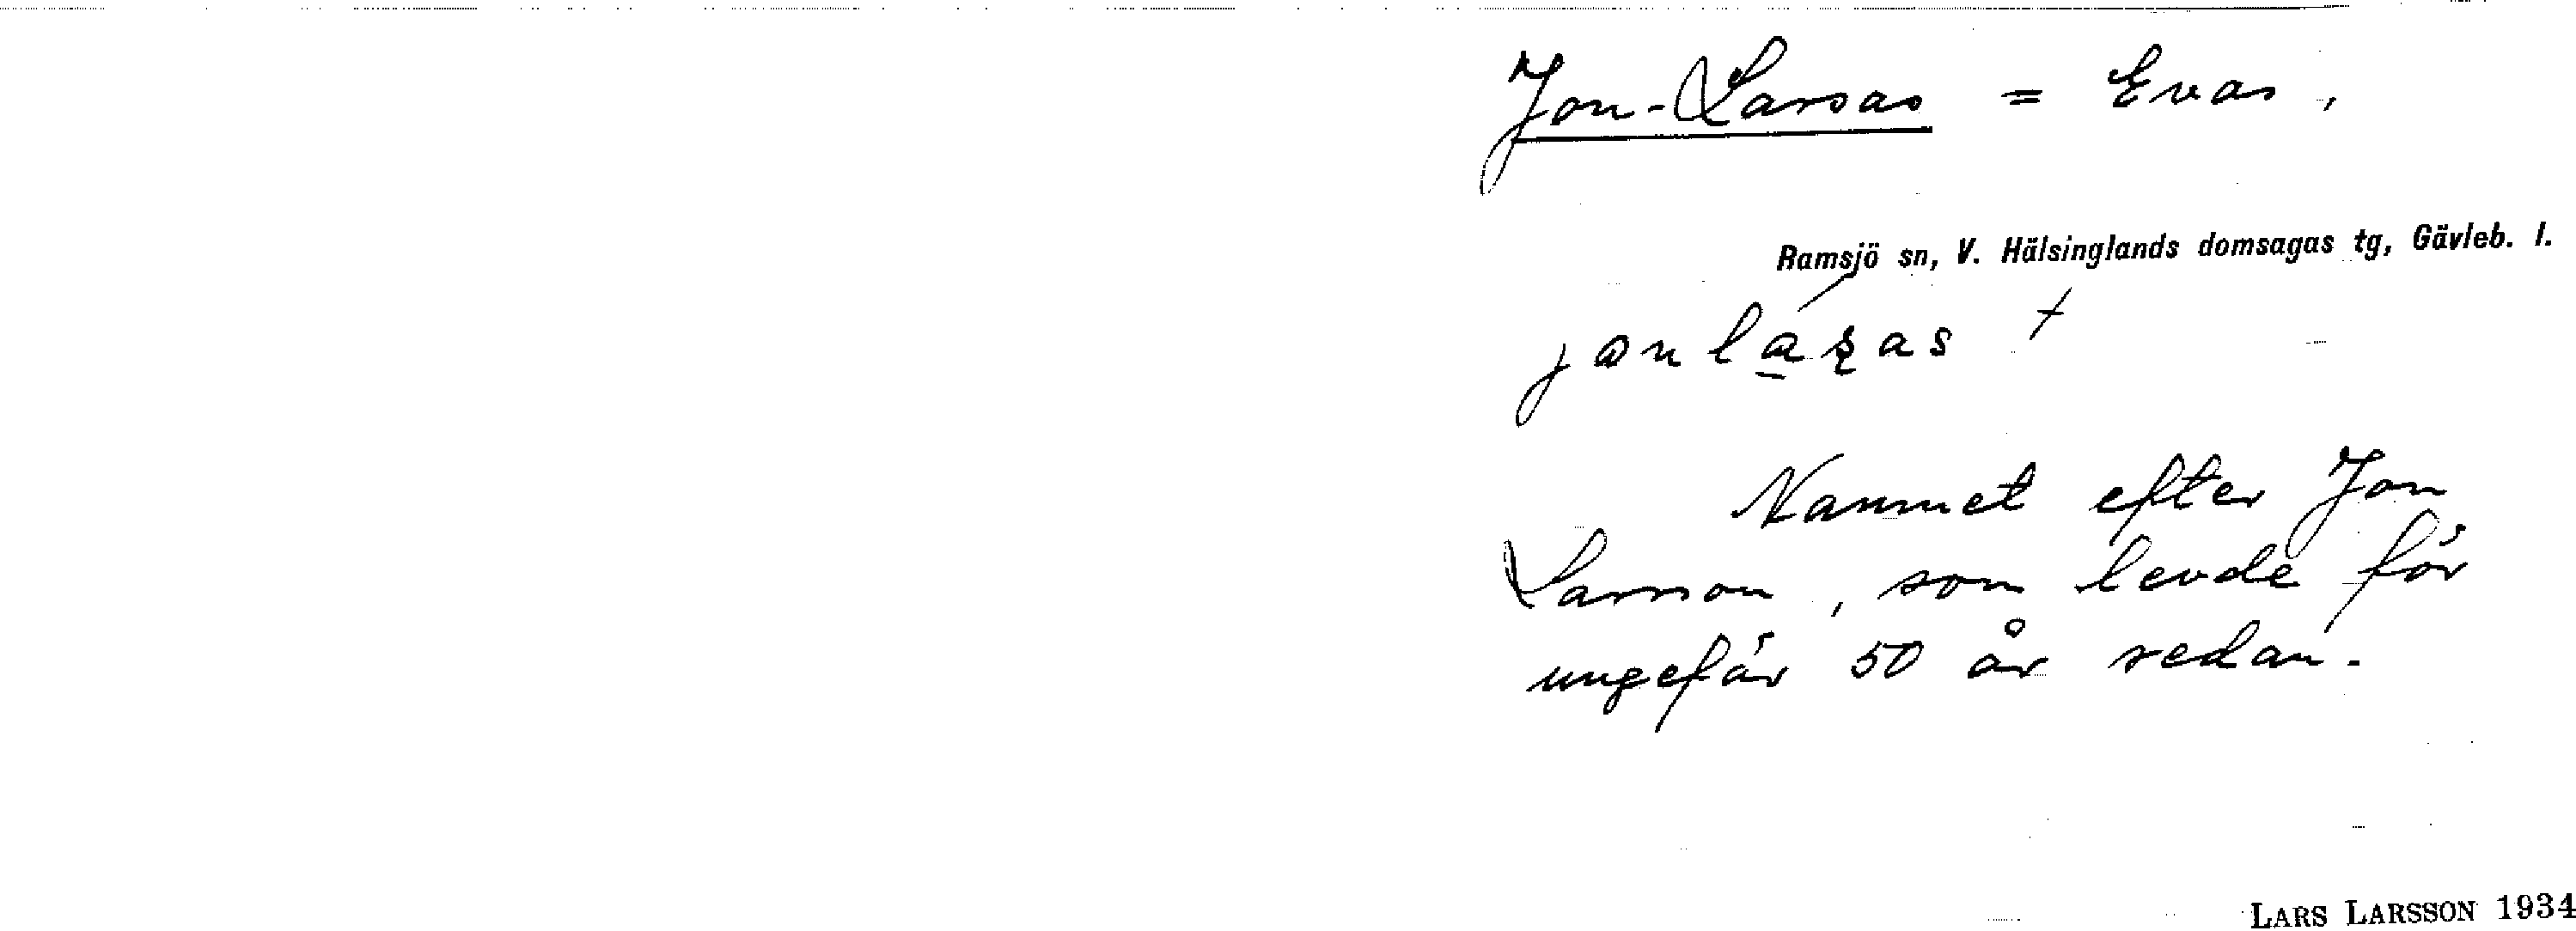 Jon-Larsas = Evas,
Ramsjö sn, V. Hälsinglands domsagas tg, Gävleb. l.
Namnet efter Jon
Larsson, som levde för
ungefär 50 år sedan.
LARS LARSSON 1934